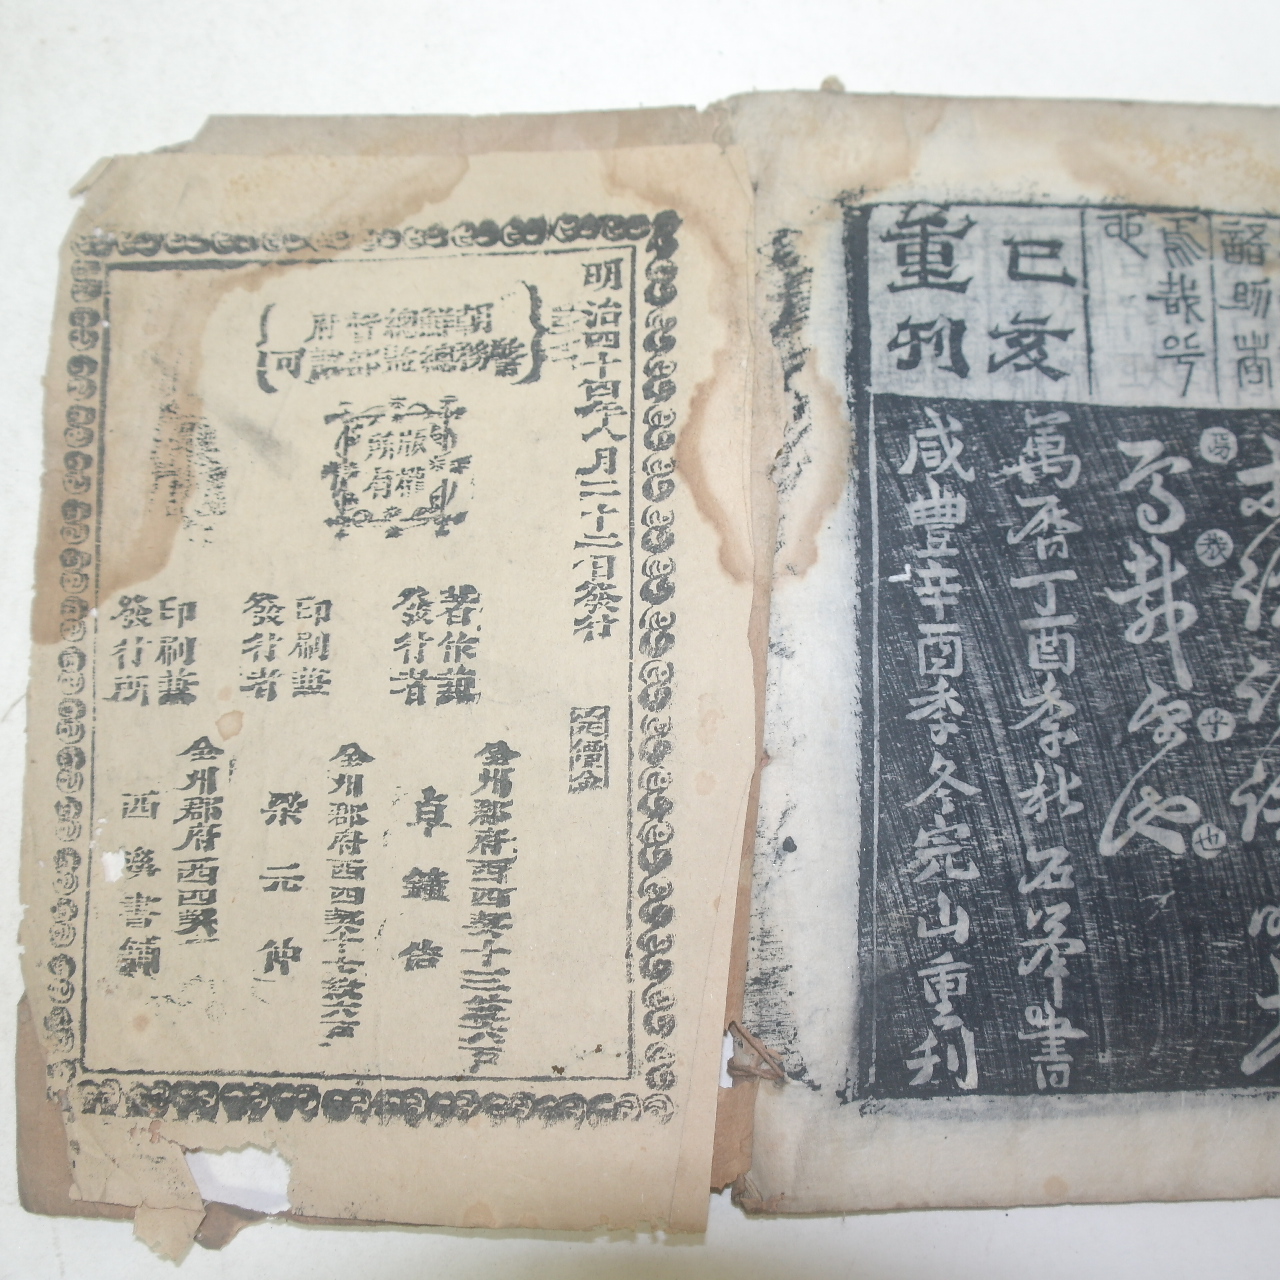 謂語助者
焉哉乎
也
己亥
重刊
焉哉乎也
焉 哉 乎 也
萬曆丁酉季秋石峯書
咸豐辛酉季冬完山重刊
明治四十四年八月二十二日發行
定價金
朝鮮總督府
警務總監部認可
版權
所有
著作兼
發行者
全州郡府西四契十三統八戶
卓鐘佶
印刷兼
發行者
全州郡府西四契十七統六戶
梁元仲
印刷兼
發行所
全州郡府西四契
西溪書鋪